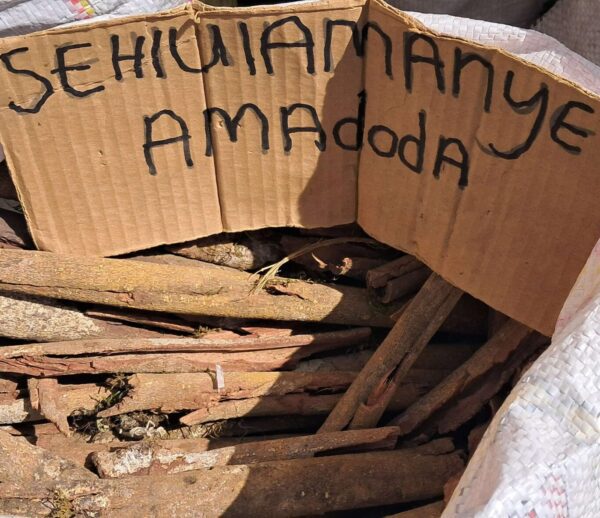 SEHlUlAmAnye
AmAdodA